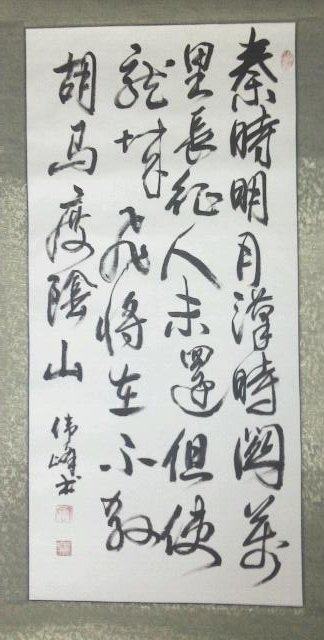 秦時明月漢時關萬
里長征人未還但使
龍城飛將在不教
胡馬度陰山
伟峰书